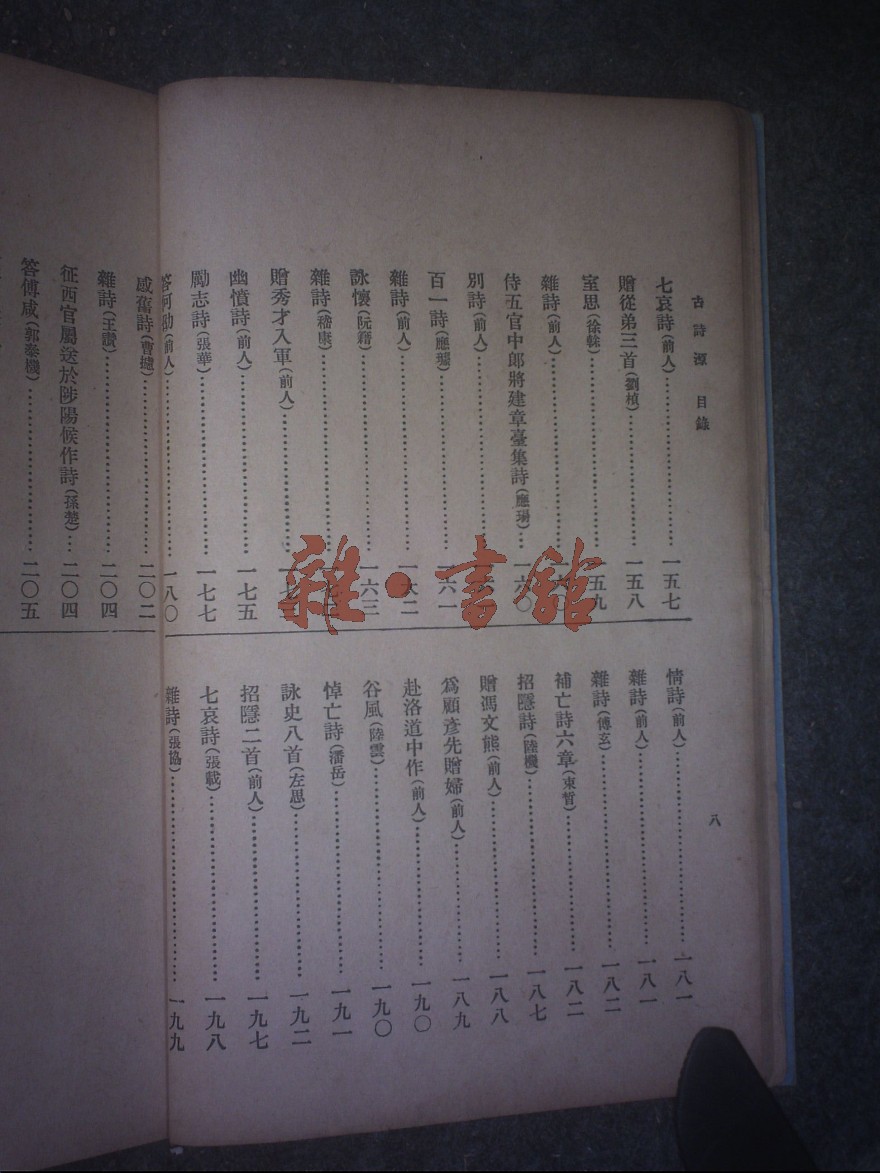 古詩源 目錄
七哀詩(前人)……一五七
贈從弟三首(劉楨)……一五八
室思(徐幹)……一五九
雜詩(前人)……
侍五官中郎將建章臺集詩(應瑒)…一六〇
別詩(前人)……
百一詩(應璩)……一六一
雜詩(前人)……一六二
詠懷(阮籍)……一六三
雜詩(嵇康)……
贈秀才入軍(前人)……
幽憤詩(前人)……一七五
勵志詩(張華)……一七七
答何劭(前人)……一八〇
情詩(前人)……一八一
雜詩(前人)……一八一
雜詩(傅玄)……一八二
補亡詩六章(束皙)……一八二
招隱詩(陸機)……一八七
贈馮文熊(前人)……一八八
爲顧彥先贈婦(前人)……一八九
赴洛道中作(前人)……一九〇
谷風(陸雲)……一九〇
悼亡詩(潘岳)……一九一
詠史八首(左思)……一九二
招隱二首(前人)……一九七
七哀詩(張載)……一九八
雜詩(張協)……一九九
八
感舊詩(曹攄)……二〇二
雜詩(王讚)……二〇四
征西官屬送於陟陽候作詩(孫楚)…二〇四
答傅咸(郭泰機)……二〇五
雜·書館